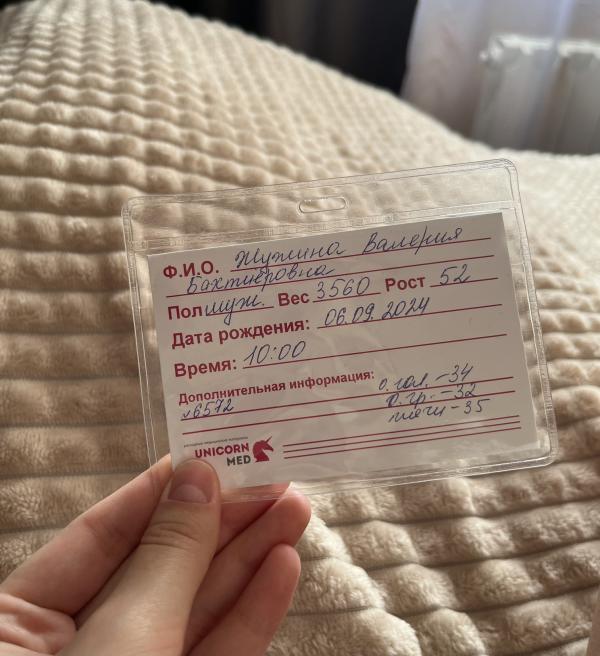 Ф.И.О. Мужина Валерия
Бахтиёровна
Пол муж. Вес 3560 Рост 52
Дата рождения: 06.09.2024
Время: 10:00
Дополнительная информация: о.гол. -34
№6572 о.гр. -32
плечи -35
расходные медицинские материалы
UNICORN
MED